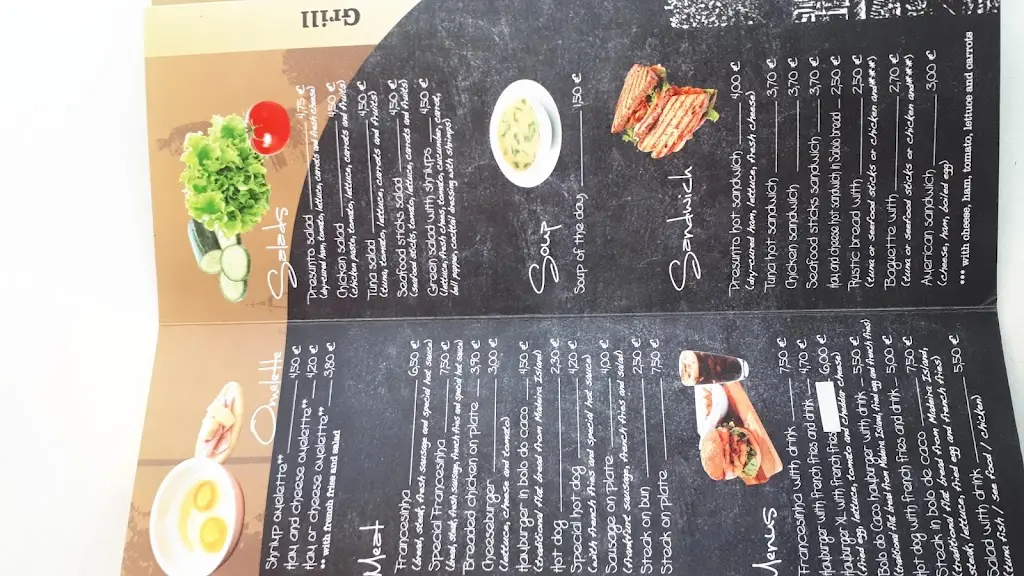 Grill
Omelette
Shrimp omelette**
Ham and cheese omelette** 4,50 €
Ham or cheese omelette** 4,20 €
3,80 €
** with french fries and salad
Meat
Francesinha 6,50 €
(bread, steak, fresh, sausage and special hot sauce)
Special Francesinha 7,50 €
(bread, steak, fresh sausage, french fries and special hot sauce)
Breaded chicken on plate 3,50 €
Cheeseburger 3,00 €
(lettuce, cheese and tomato)
Hamburger in bolo do caco 4,50 €
(traditional flat bread from Madeira Island)
Hot dog 2,30 €
Special hot dog 4,20 €
(with french fries and special hot sauce)
Sausage on plate 4,00 €
(Frankfurt sausage, french fries and salad)
Steak on bun 2,50 €
Steak on plate 7,50 €
Menus
Francesinha with drink 7,50 €
Hamburger with French fries and drink 4,70 €
Hamburger XL with French fries 6,00 €
(fried egg, lettuce, tomato and cheddar cheese)
Bolo do Caco hamburger with drink 5,50 €
(traditional flat bread from Madeira Island, fried egg and french fries)
Hot dog with French fries and drink 5,00 €
Steak in bolo de caco 7,50 €
(traditional flat bread from Madeira Island,
steak, lettuce, fried egg and french fries)
Salad with drink 5,50 €
(tuna fish / sea food / chicken)
Salads
Presunto salad 4,75 €
(dry-cured ham, lettuce, carrots and fresh cheese)
Chicken salad 4,50 €
(chicken paste, tomato, lettuce, carrots and fruits)
Tuna salad 4,50 €
(tuna, tomato, lettuce, carrots and fruits)
Seafood sticks salad 4,50 €
(seafood sticks, tomato, lettuce, carrots and fruits)
Green salad with shrimps 4,50 €
(lettuce, fresh cheese, tomato, cucumber, carrot,
bell pepper, cocktail dressing with shrimps)
Soup
Soup of the day 1,50 €
Sandwich
Presunto hot sandwich 4,00 €
(dry-cured ham, lettuce, fresh cheese)
Tuna hot sandwich 3,70 €
Chicken sandwich 3,70 €
Seafood sticks sandwich 3,70 €
Ham and cheese hot sandwich in Saloio bread 2,50 €
Rustic bread with 2,50 €
(tuna or seafood sticks or chicken and***)
Baguette with 2,70 €
(tuna or seafood sticks or chicken and***)
American sandwich 3,00 €
(cheese, ham, boiled egg)
*** with cheese, ham, tomato, lettuce and carrots